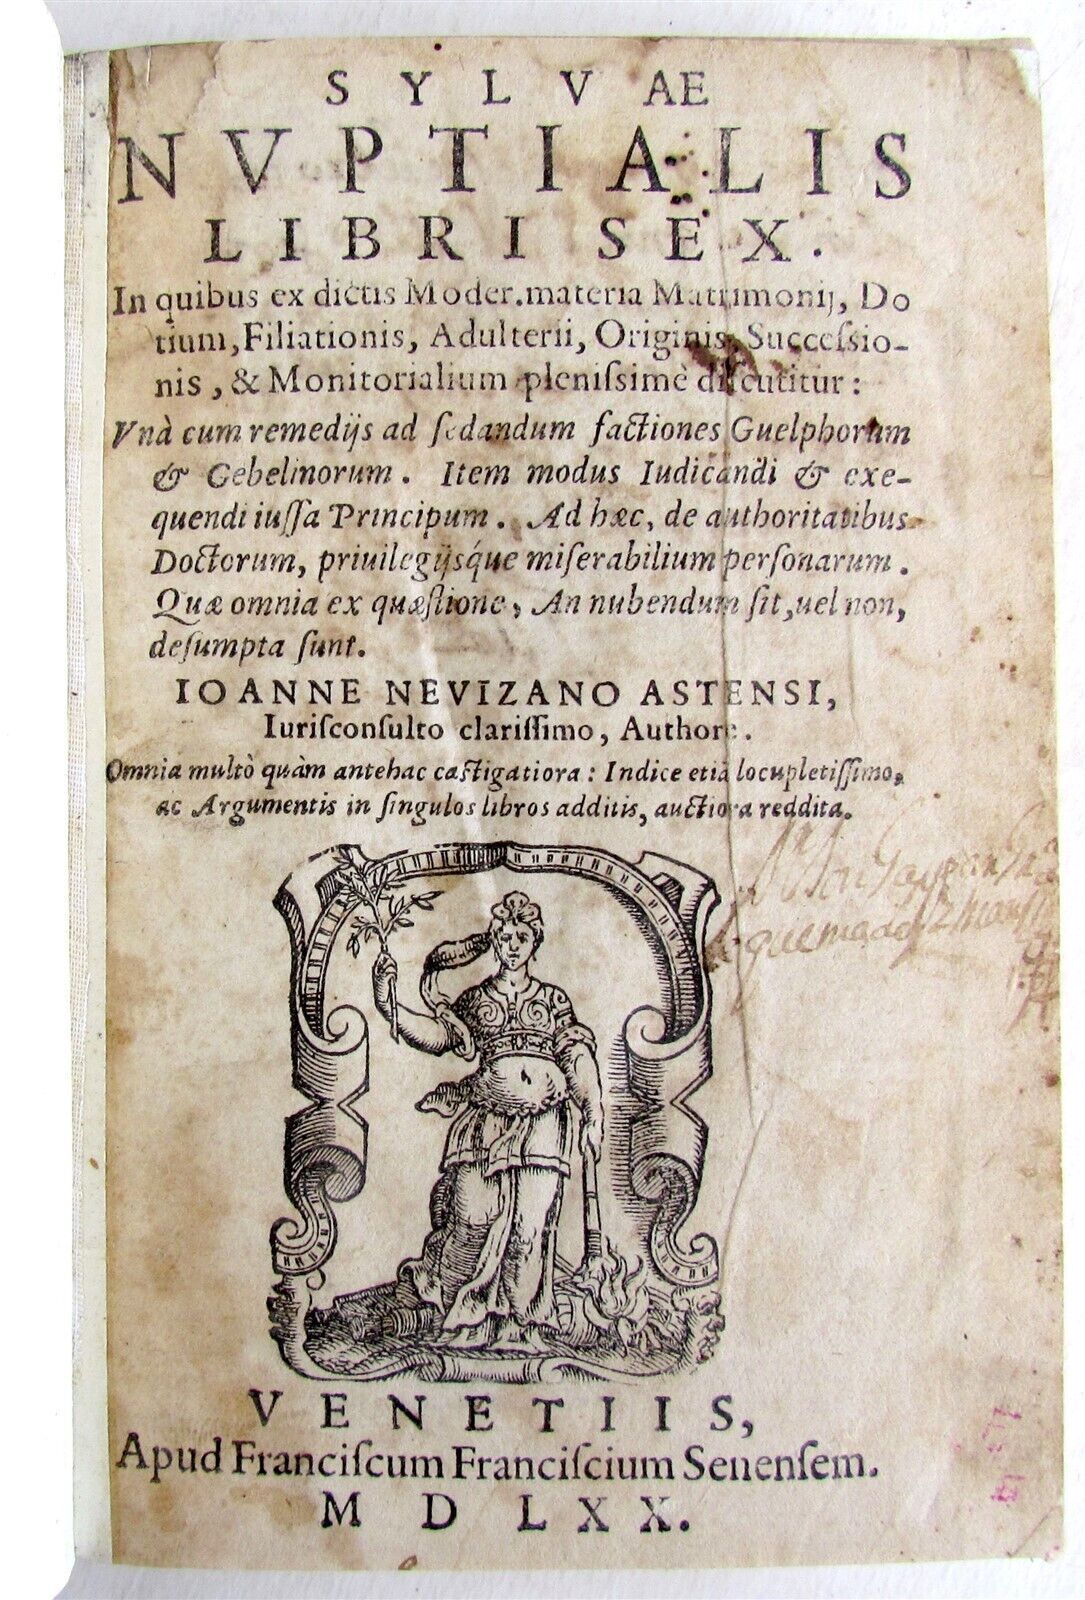 SYLVAE
NVPTIALIS
LIBRI SEX.
In quibus ex dictis Moder. materia Matrimonij, Do
tium, Filiationis, Adulterii, Originis, Succeſsio-
nis, & Monitorialium pleniſsimè diſcutitur:
Vnà cum remedijs ad ſedandum factiones Guelphorum
& Gebelinorum. Item modus Iudicandi & exe-
quendi iuſſa Principum. Ad hæc, de authoritatibus
Doctorum, priuilegijsq́ue miſerabilium perſonarum.
Quæ omnia ex quæſtione, An nubendum ſit, uel non,
deſumpta ſunt.
IOANNE NEVIZANO ASTENSI,
Iuriſconſulto clariſſimo, Authore.
Omnia multò quàm antehac caſtigatiora: Indice etiã locupletiſſimo,
ac Argumentis in ſingulos libros additis, auctiora reddita.
VENETIIS,
Apud Franciſcum Franciſcium Senenſem.
MDLXX.